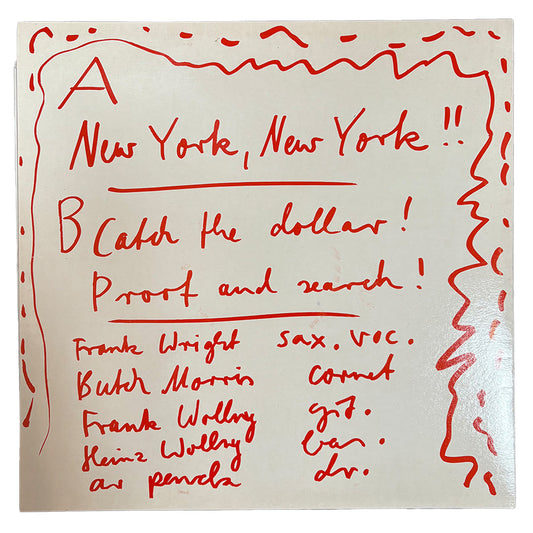 A
New York, New York!!
B Catch the dollar!
Proof and search!
Frank Wright sax. voc.
Butch Morris cornet
Frank Wollny git.
Heinz Wollny bas.
ar penck dr.